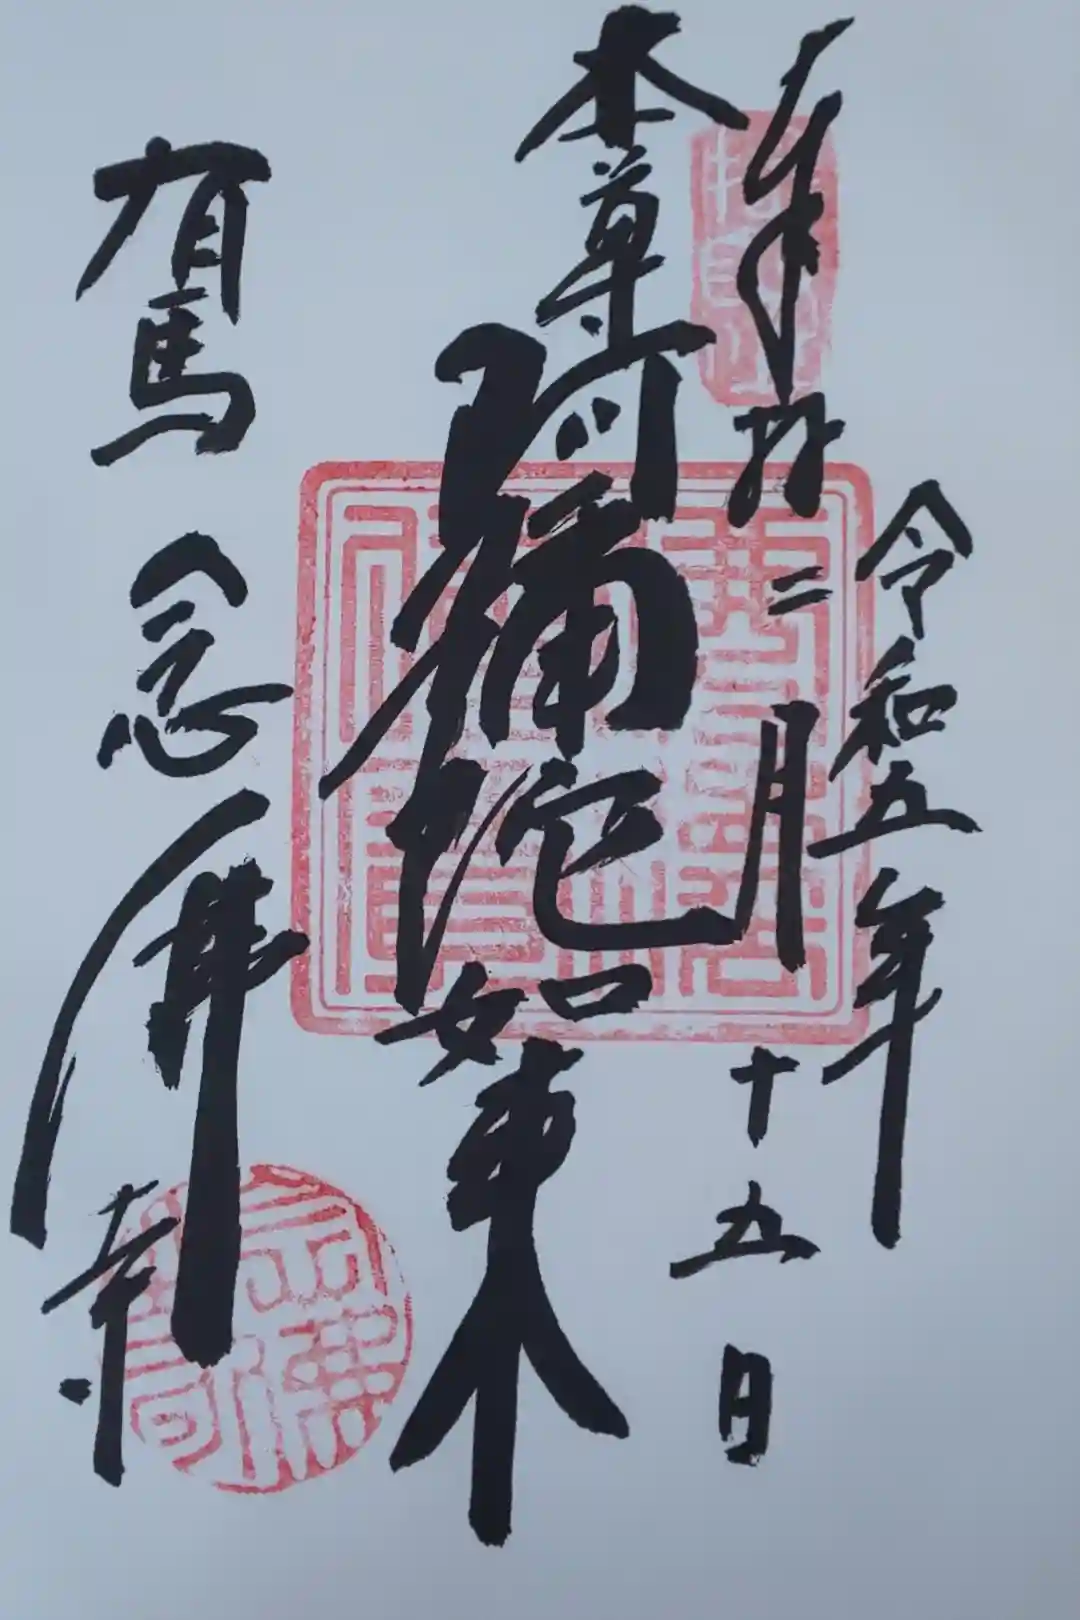 令和五年
奉拝
二月十五日
本尊
阿彌陀如来
有馬
念佛寺